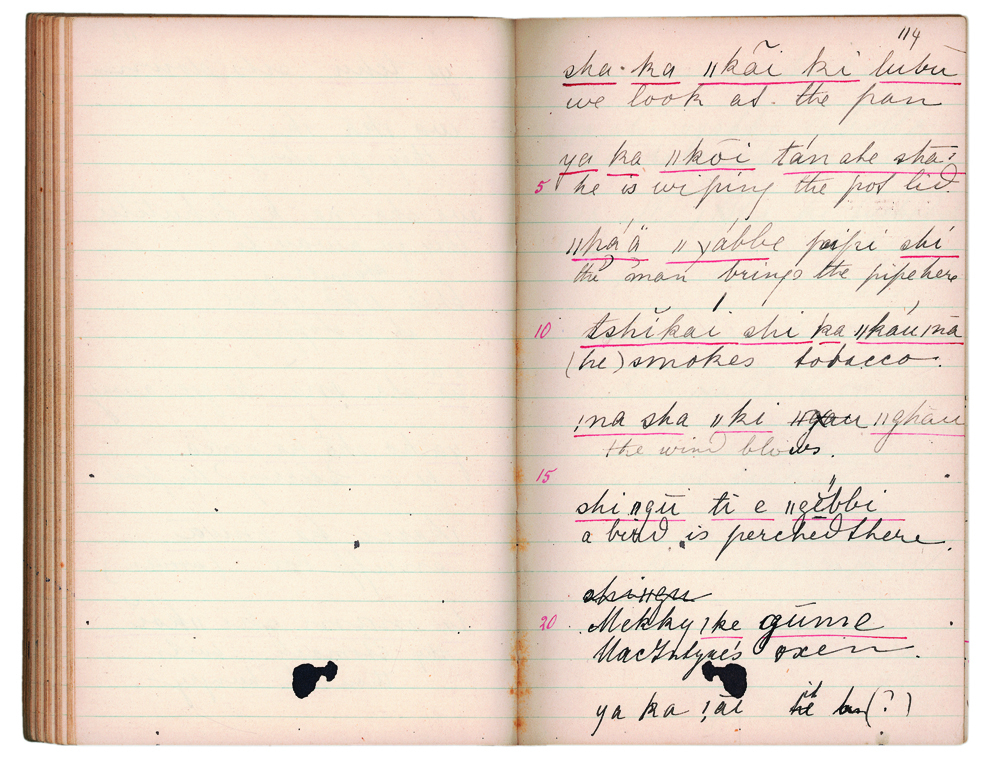 114
sha‧ka ǁkãi ki lubu
we look at the pan
ya ka ǁkōi tán ahe sta:
5 he is wiping the pot lid.
ǁká'ä ǁyábbe pipi shí
the man brings the pipe here
10 tshĭkaí shi ka ǁkáuǀna
(he) smokes tobacco.
ǃna sha ǁki ǁghau
the wind blows.
15
shiǁgū ti e ǁgĕbbi
a bird is perched there.
shiǁgu
20 Mekkyǃke gūme
MacIntyre's oxen.
ya ka ǃāi it (?)